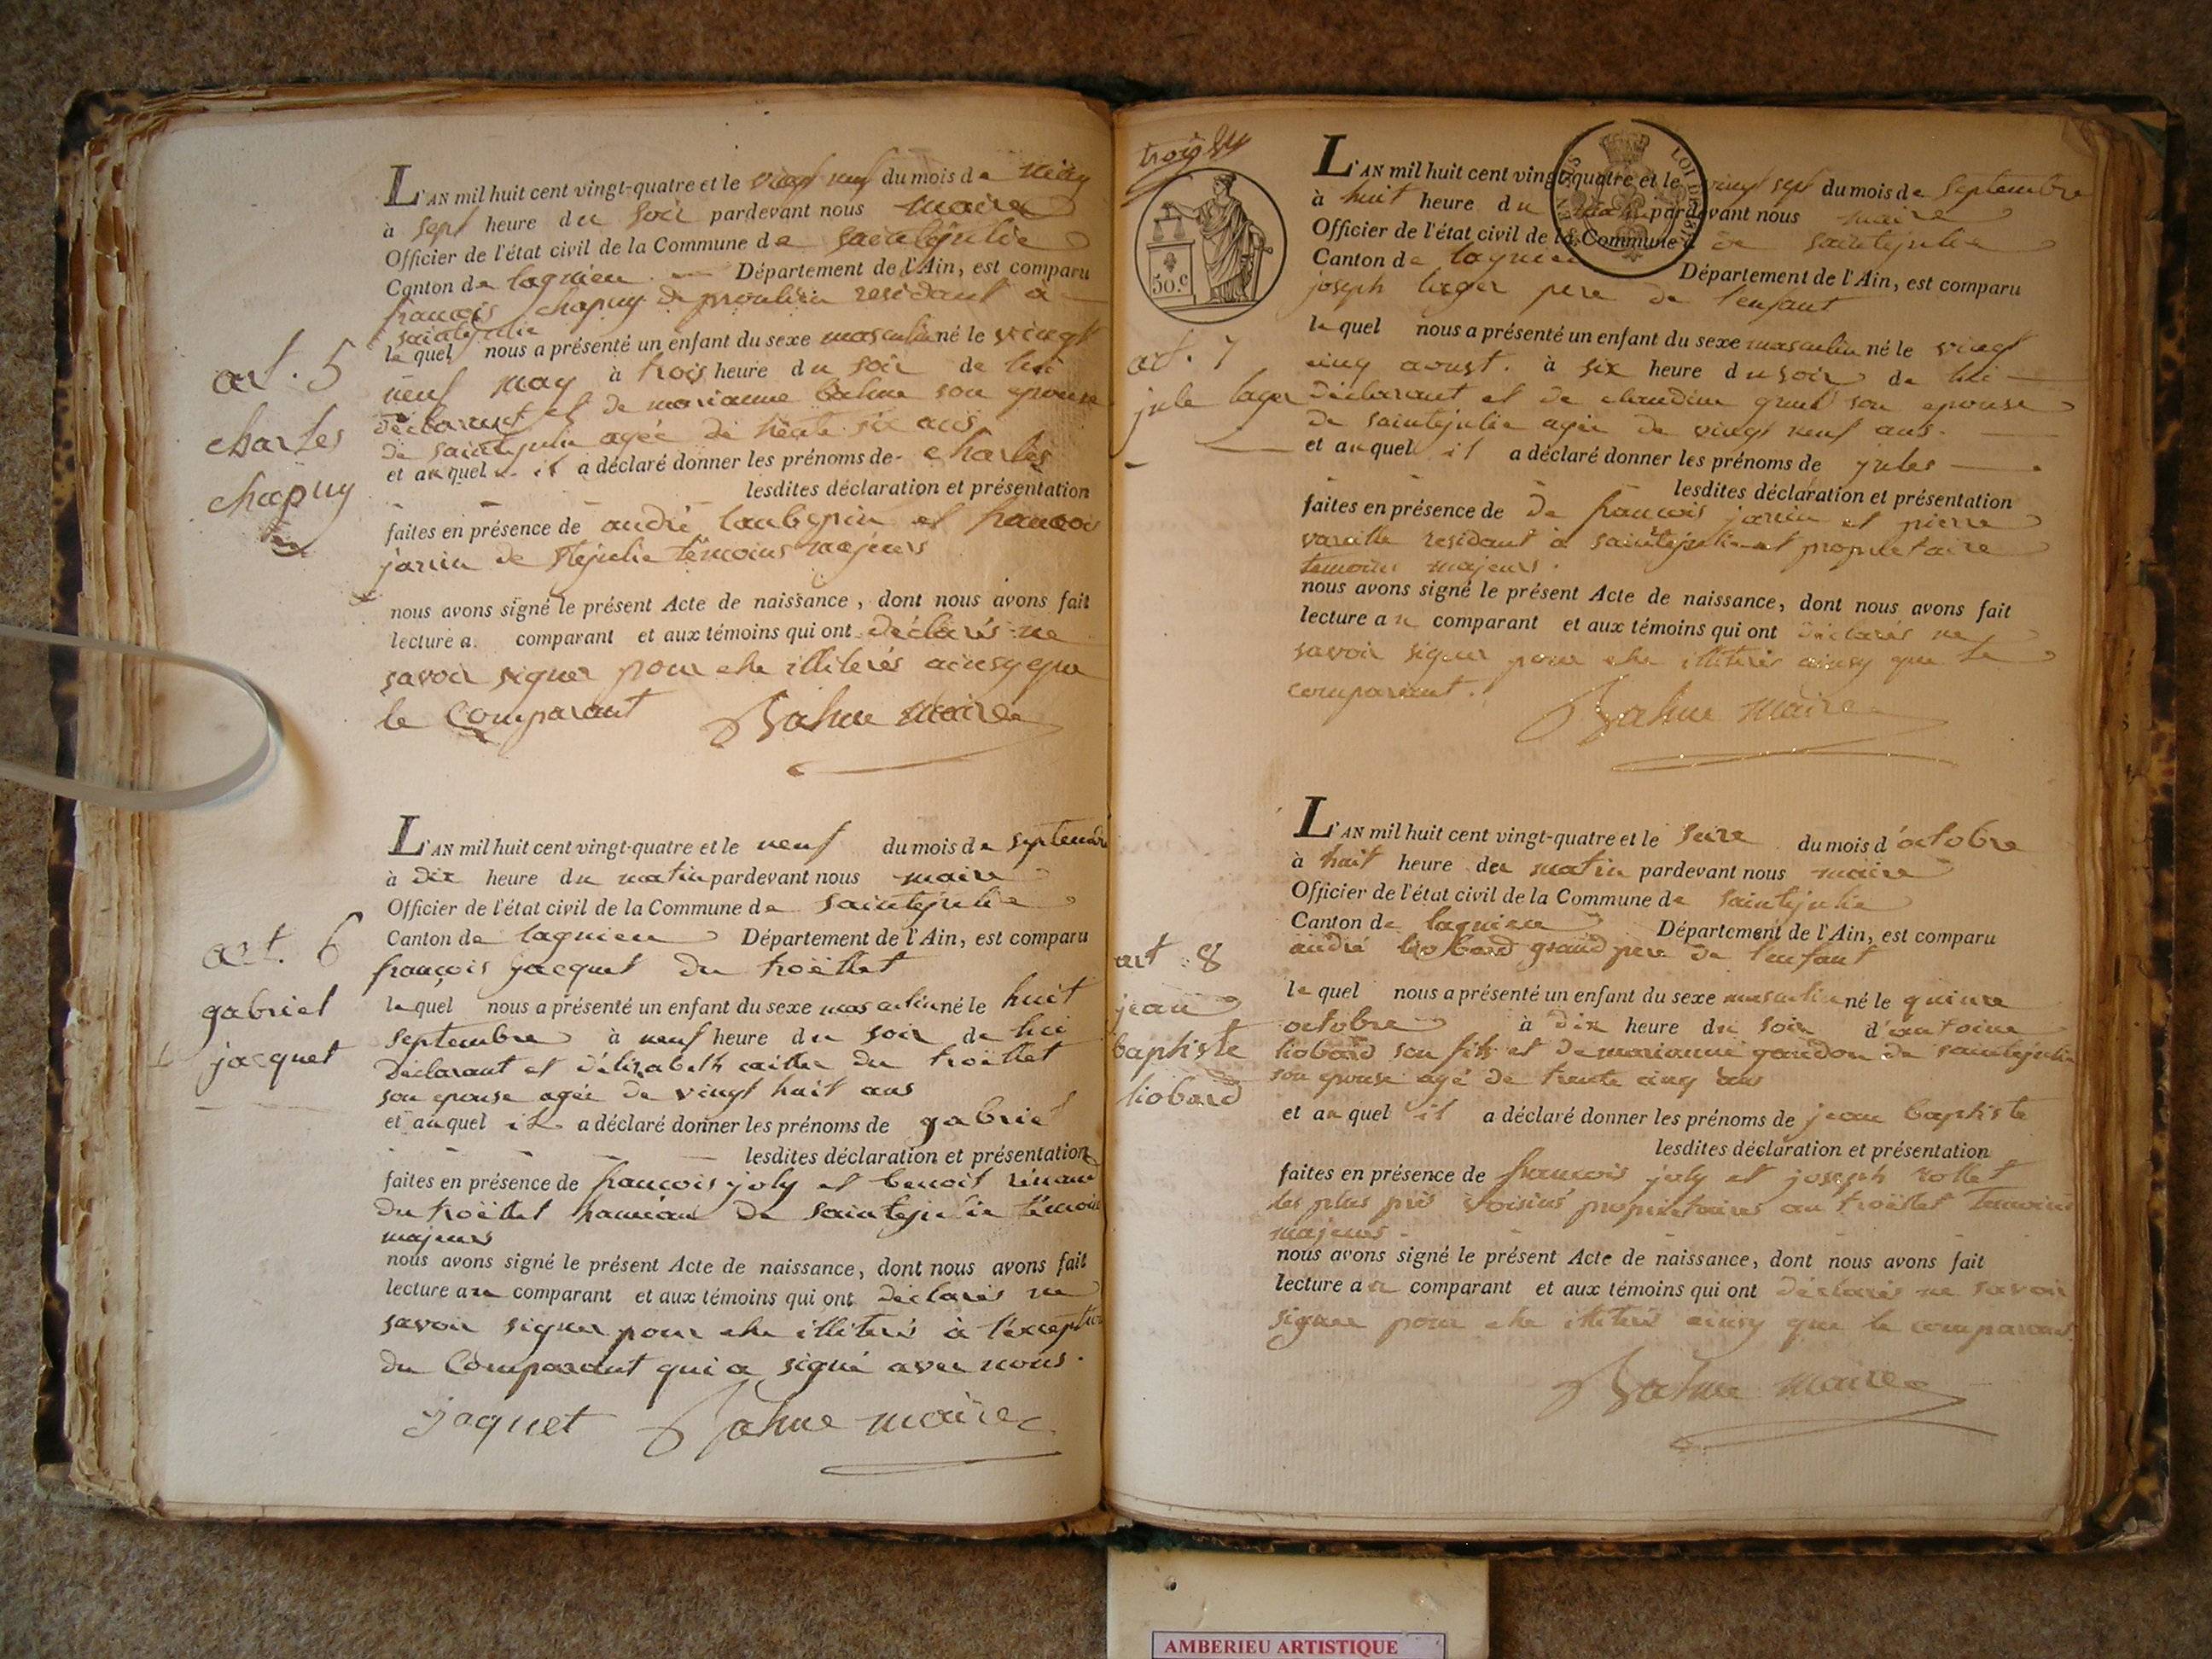 L'AN mil huit cent vingt-quatre et le vingt neuf du mois de may
à sept heure du soir pardevant nous maire
Officier de l'état civil de la Commune de saintejulie
Canton de lagnieu Département de l'Ain, est comparu
francois chapuy de proulieu residant a
saintejulie
le quel nous a présenté un enfant du sexe masculin né le vingt
neuf may à trois heure du soir de lui
déclarant et de marianne bahue son epouse
de saintejulie agée de trente six ans
et au quel il a déclaré donner les prénoms de charles
lesdites déclaration et présentation
faites en présence de andré laubepin et francois
janin de stejulie témoins majeurs
nous avons signé le présent Acte de naissance, dont nous avons fait
lecture a comparant et aux témoins qui ont déclarés ne
savoir signer pour etre illiterés ainsy que
le Comparant Bahue maire
art. 5
charles
chapuy
L'AN mil huit cent vingt-quatre et le neuf du mois de septembre
à dix heure du matin pardevant nous maire
Officier de l'état civil de la Commune de saintejulie
Canton de lagnieu Département de l'Ain, est comparu
françois jacquet du troëllet
le quel nous a présenté un enfant du sexe masculin né le huit
septembre à neuf heure du soir de lui
déclarant et d'élizabeth du troëllet
son epouse agée de vingt huit ans
et au quel il a déclaré donner les prénoms de gabriel
lesdites déclaration et présentation
faites en présence de francois joly et benoit
du troëllet hameau de saintejulie témoins
majeurs
nous avons signé le présent Acte de naissance, dont nous avons fait
lecture au comparant et aux témoins qui ont déclarés ne
savoir signer pour etre illiterés à l'exception
du Comparant qui a signé avec nous.
jaquet Bahue maire
art. 6
gabriel
jacquet
50.c
LOI DE
L'AN mil huit cent vingt-quatre et le vingt sept du mois de septembre
à huit heure du pardevant nous maire
Officier de l'état civil de la Commune de saintejulie
Canton de lagnieu Département de l'Ain, est comparu
joseph pere de l'enfant
le quel nous a présenté un enfant du sexe masculin né le vingt
cinq aoust. à six heure du soir de lui
déclarant et de claudine son epouse
de saintejulie agée de vingt neuf ans.
et au quel il a déclaré donner les prénoms de jules
lesdites déclaration et présentation
faites en présence de de francois janin et pierre
residant a saintejulie et propriétaire
temoins majeurs.
nous avons signé le présent Acte de naissance, dont nous avons fait
lecture au comparant et aux témoins qui ont déclarés ne
savoir signer pour etre illiterés ainsy que le
comparant.
Bahue maire
art. 7
jule lager
L'AN mil huit cent vingt-quatre et le seize du mois d'octobre
à huit heure du matin pardevant nous maire
Officier de l'état civil de la Commune de saintejulie
Canton de lagnieu Département de l'Ain, est comparu
andré liobard grand pere de l'enfant
le quel nous a présenté un enfant du sexe masculin né le quinze
octobre à dix heure du soir d'antoine
liobard son fils et de marianne gandon de saintejulie
son epouse agé de trente cinq ans
et au quel il a déclaré donner les prénoms de jean baptiste
lesdites déclaration et présentation
faites en présence de francois joly et joseph rollet
les plus près voisins propriétaires au troëllet temoins
majeurs.
nous avons signé le présent Acte de naissance, dont nous avons fait
lecture au comparant et aux témoins qui ont déclarés ne savoir
signer pour etre illiterés ainsy que le comparant.
Bahue maire
art. 8
jean
baptiste
liobard
AMBERIEU ARTISTIQUE